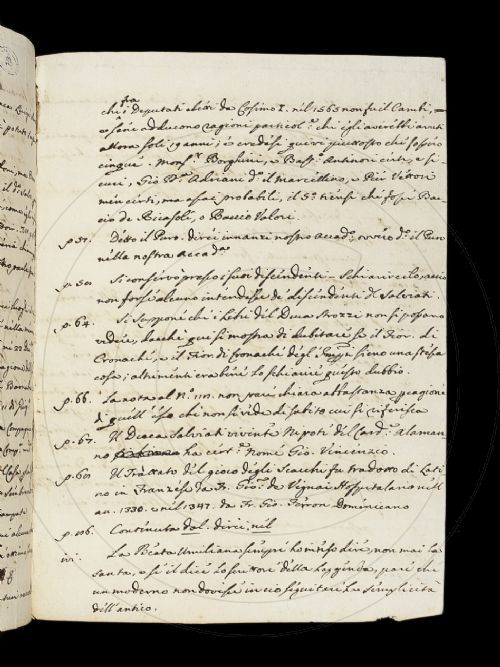 tra
che i Deputati eletti da Cosimo I. nel 1565 non fu il Cambi, e
se ne adducono ragioni particol.i che egli avrebbe avuti
allora soli 19 anni; e credesi quivi piuttosto che fossero
cinque. Mons.r Borghini, e Bast.o Antinori certi, e si-
curi, Gio. B.a Adriani d.o il Marcellino, e Pier Vettori
men certi, ma assai probabili, il 5.o tiensi che fosse Bac-
cio de Ricasoli, o Baccio Valori.
p. 57. Detto il Puro. direi innanzi nostro Accad.o, ovvero d.o il Puro
nella nostra Accad.a
p. 50. Si conservò presso i suoi discendenti - schiariscelo, acciò
non forse alcuno intendesse de discendenti di Salviati.
p. 64. Si suppone che i Testi del Duca Strozzi non si possano
vedere, sicchè qui si mostra di dubitare se il Fior. di
Cronache, e il Fior di Cronache degli Imp.ri sieno una stessa
cosa; altrimenti era bene lo schiarire questo dubbio.
p. 66. La nota al N.o 111. non pare chiara abbastanza per cagione
di quell' esso che non si vede di subito a cui si riferisca
p. 67. Il Duca Salviati vivente Nipote del Card.e Alaman-
no ha cert.e nome Gio. Vincenzo.
p. 60. Il Trattato del gioco degli Scacchi fu tradotto di Lati-
no in Franzese da Fr. Gio. de Vignai Hospitalario nell'
an. 1330. e nel 1347. da Fr. Gio. Ferron Domenicano
p. 106. Contenuta dal. direi, nel
ivi. La Beata Umiliana sempre ho inteso dire, non mai la
Santa, e se il dice lo scrittore della Leggenda, pare che
un moderno non dovesse in ciò seguitare la semplicità
dell' antico.